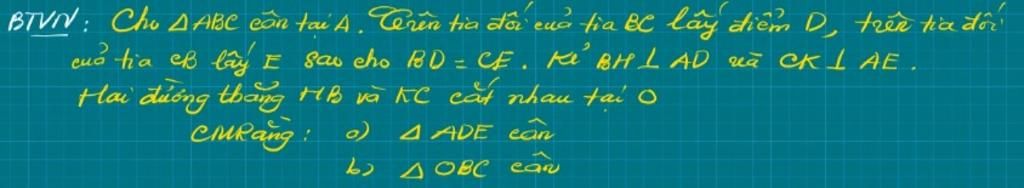 BTVN: Cho △ABC cân tại A. Trên tia đối của tia BC lấy điểm D, trên tia đối
của tia CB lấy E sao cho BD = CE. Kẻ BH ⊥ AD và CK ⊥ AE.
Hai đường thẳng HB và KC cắt nhau tại O
CMRằng: a) △ ADE cân
b) △ OBC cân